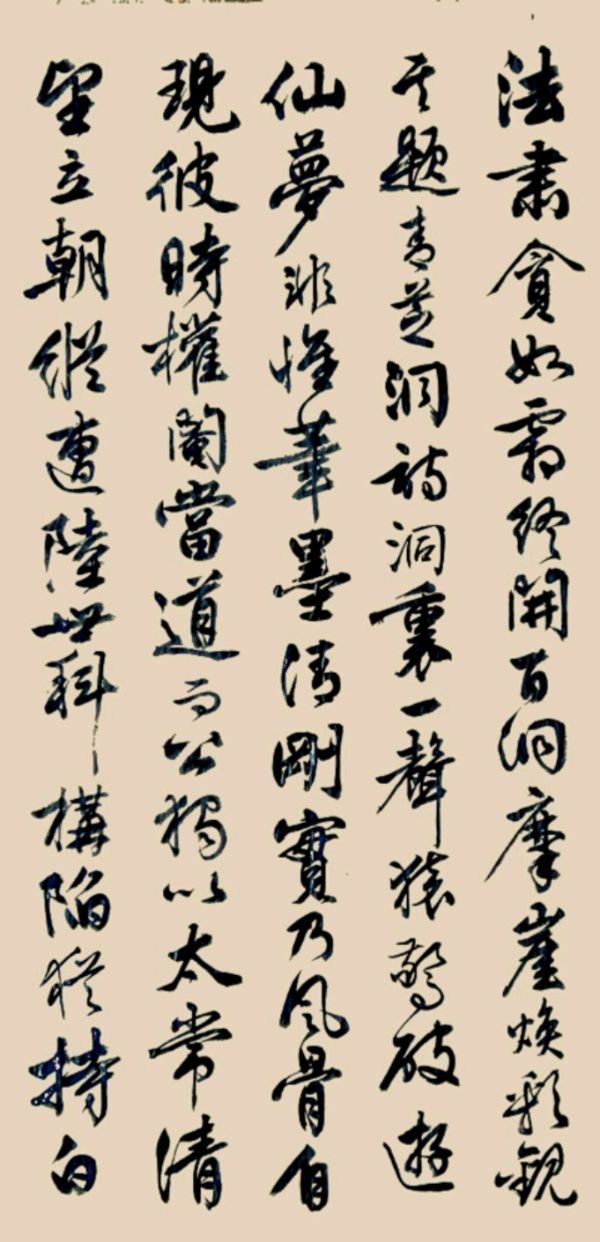 法肅貪如霜終開百洞摩崖煥彩觀
其題青芝洞詩洞裏一聲猿驚破遊
仙夢非惟筆墨清剛實乃風骨自
現彼時權閹當道而公獨以太常清
望立朝縱遭陸世科構陷猶持白